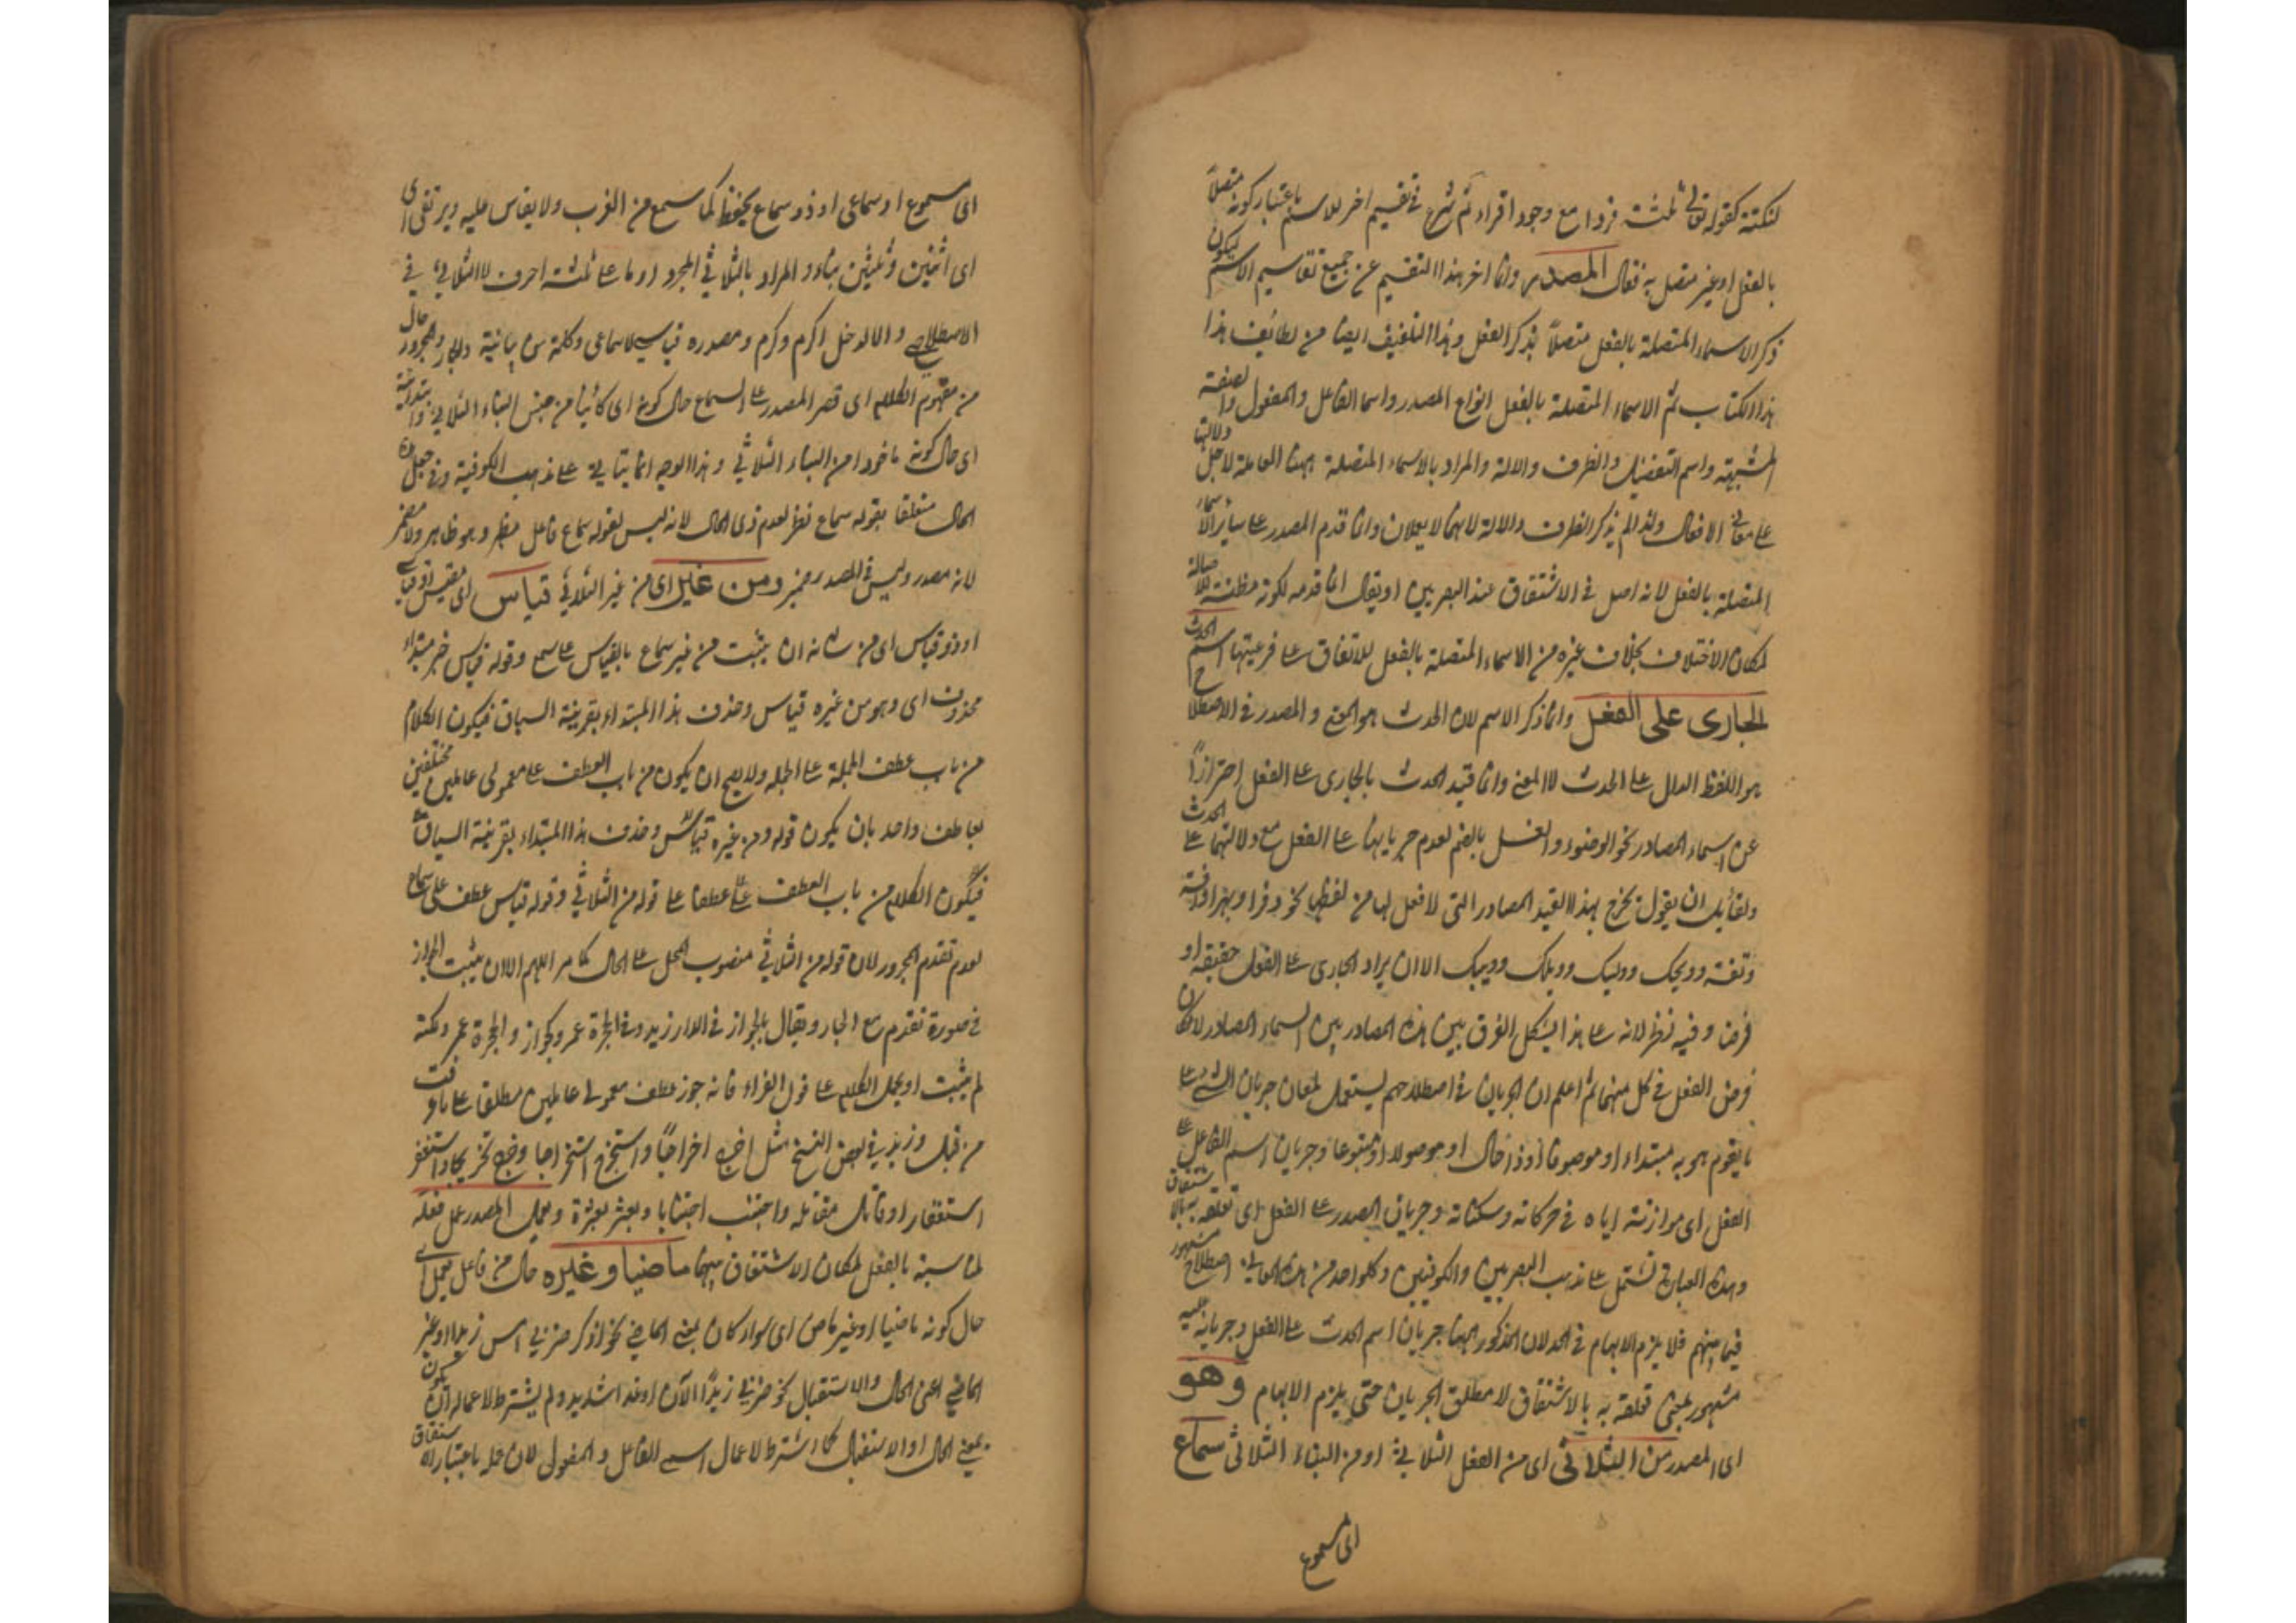 لنكتة كقوله تعالى ثلثة قروء مع وجود اقراء ثم شرع في تقسيم اخر للاسم باعتبار كونه متصلاً
بالفعل او غير متصل به فقال المصدر وانما اخر هذا التقسيم عن جميع تقاسيم الاسم ليكون
ذكر الاسماء المتصلة بالفعل متصلاً بذكر الفعل وهذا التلفيف ايضا من لطائف هذا
هذا الكتاب ثم الاسماء المتصلة بالفعل انواع المصدر واسما الفاعل والمفعول والصفة
المشبهة واسم التفضيل والظرف والالة والمراد بالاسماء المتصلة ههنا العاملة لاجل دلالتها
على معاني الافعال ولذا لم يذكر الظرف والالة لانهما لا يعملان وانما قدم المصدر على سائر الاسماء
المتصلة بالفعل لانه اصل في الاشتقاق عند البصريين او يقال انما قدمه لكونه مظنة للاصالة
لمكان الاختلاف بخلاف غيره من الاسماء المتصلة بالفعل للاتفاق على فرعيتها اسم الحدث
الجارى على الفعل وانما ذكر الاسم لان الحدث هو المعنى والمصدر في الاصطلاح
هو اللفظ الدال على الحدث لا المعنى وانما قيد الحدث بالجارى على الفعل احترازًا
عن اسماء المصادر نحو الوضوء والغسل بالضم لعدم جريانهما على الفعل مع دلالتهما على الحدث
ولقائل ان يقول يخرج بهذا القيد المصادر التى لا فعل لها من لفظها نحو دفرا وبهرا وافة
وتفة وويحك وويلك وويبك الا ان يراد الجارى على الفعل حقيقة او
فرضا وفيه نظر لانه على هذا يشكل الفرق بين هذه المصادر وبين اسماء المصادر لامكان
فرض الفعل في كل منهما ثم اعلم ان الجريان في اصطلاحهم يستعمل لمعان جريان الشئ على
ما يقوم هو به مبتداء او موصوفا او ذا حال او موصولا او متبوعا وجريان اسم الفاعل على
الفعل اى موازنته اياه في حركاته وسكناته وجريان المصدر على الفعل اى تعلقه به بالاشتقاق
وهذه العبارة تشتمل على مذهب البصريين والكوفيين وكل واحد من هذه المعاني اصطلاح مشهور
فيما بينهم فلا يلزم الابهام في الحد لان المذكور ههنا جريان اسم الحدث على الفعل وجريانه عليه
مشهور بمعنى تعلقه به بالاشتقاق لا مطلق الجريان حتى يلزم الابهام وهو
اى المصدر من الثلاثى اى من الفعل الثلاثي او من البناء الثلاثى سماع
اى مسموع
اى مسموع او سماعى او ذو سماع يحفظ كما سمع من العرب ولا يقاس عليه ويرتقى الى
اى اثنين وثلثين بناء والمراد بالثلاثي المجرد او ما على ثلثة احرف لا الثلاثي في
الاصطلاح والا لدخل اكرم وكرم ومصدره قياسي لا سماعى وكلمة من بيانية والجار والمجرور حال
من مفهوم الكلام اى قصر المصدر على السماع حال كونه اى كائنا من جنس البناء الثلاثي او ابتدائية
اى حال كونه ماخوذا من البناء الثلاثي وهذا الوجه انما يتاتى على مذهب الكوفية وفي جعل
الحال متعلقا بقوله سماع نظر لعدم ذى الحال لانه ليس لقوله سماع فاعل مظهر وهو ظاهر ولا مضمر
لانه مصدر وليس في المصدر ضمير ومن غيره اى من غير الثلاثي قياس اى مقيس او قياسي
او ذو قياس اى من شانه ان يثبت من غير سماع بالقياس على سمع وقوله قياس خبر مبتداء
محذوف اى وهو من غيره قياس وحذف هذا المبتداء بقرينة السياق فيكون الكلام
من باب عطف الجملة على الجملة ولا يصح ان يكون من باب العطف على معمولى عاملين مختلفين
بعاطف واحد بان يكون قوله ومن غيره قياس وحذف هذا المبتداء بقرينة السياق
فيكون الكلام من باب العطف عطفا على قوله من الثلاثي وقوله قياس عطف على سماع
لعدم تقدم المجرور لان قوله من الثلاثي منصوب المحل على الحال كما مر اللهم الا ان يثبت الجواز
في صورة تقدم مع الجار ويقال بالجواز في الدار زيد وفي الحجرة عمرو كجواز والحجرة عمرو لكنه
لم يثبت او يحمل الكلام على قول الفراء فانه جوز عطف معمولى عاملين مطلقا على ما عرفت
من قبل وزيد في بعض النسخ مثل اخرج اخراجًا واستخرج استخراجا وخرج تخريجا واستغفر
استغفارا وقاتل مقاتلة واجتنب اجتنابا وبعثر بعثرة ويعمل المصدر عمل فعله
لمناسبته بالفعل لمكان الاشتقاق بينهما ماضيا وغيره حال من فاعل يعمل اى
حال كونه ماضيا او غير ماض اى سواء كان بمعنى الماضي نحو اذكر ضربي امس زيدا او غير
الماضي اعنى الحال والاستقبال نحو ضربي زيدًا الآن او غدا شديد ولم يشترط لاعماله ان يكون
بمعنى الحال او الاستقبال كما اشترط لاعمال اسمى الفاعل والمفعول لان عمله باعتبار الاشتقاق